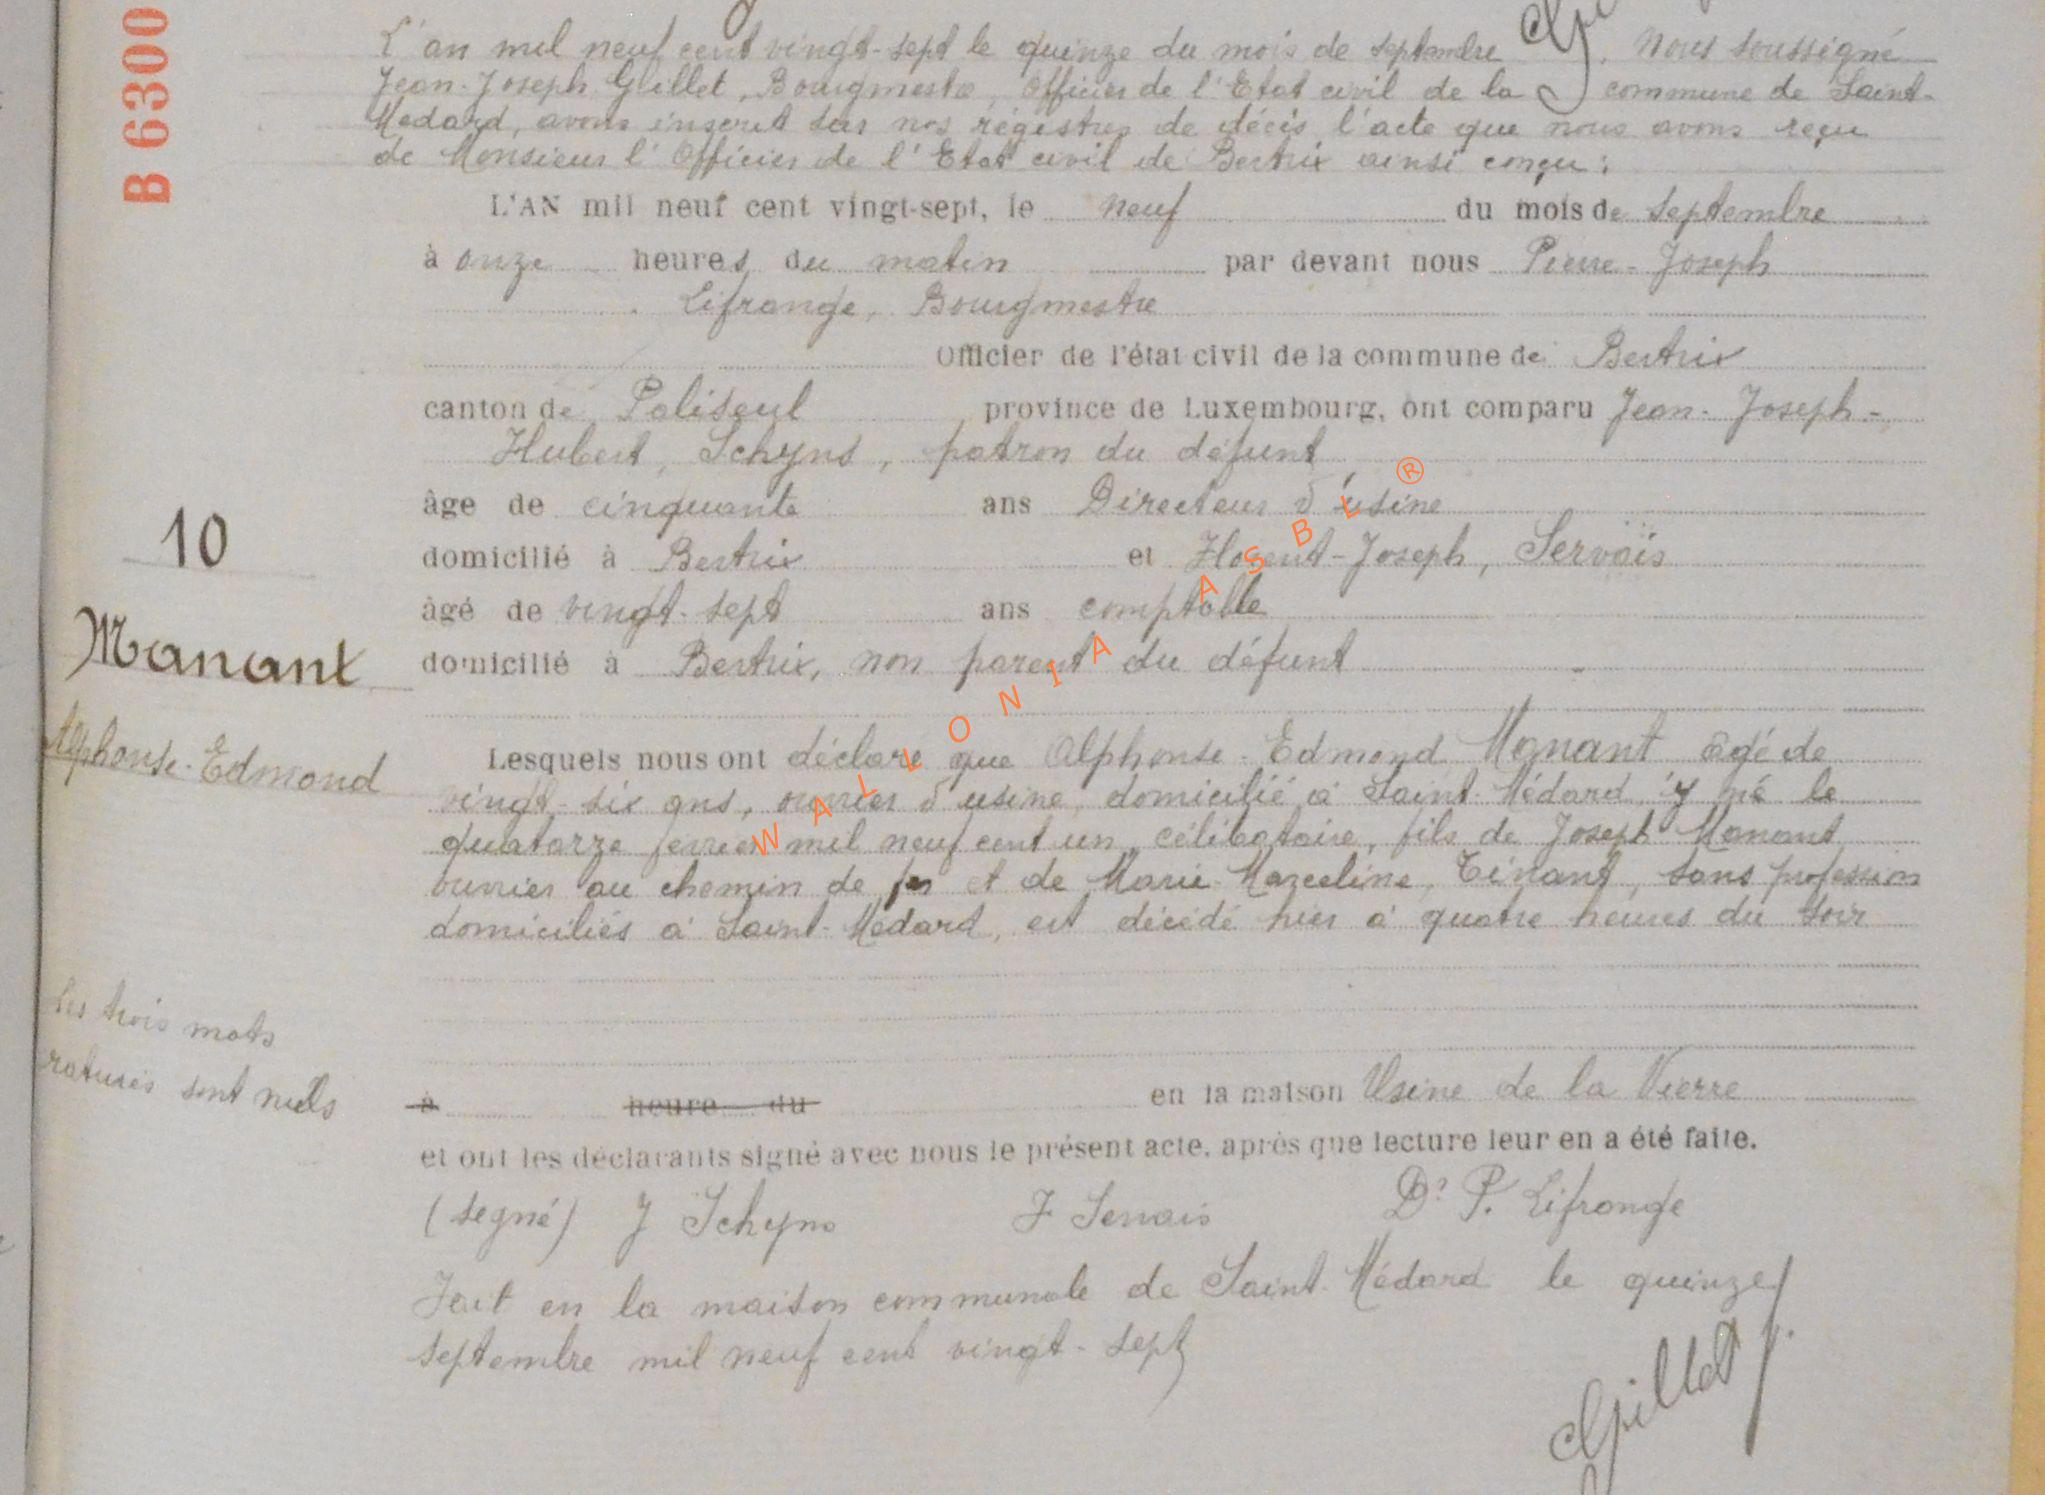 B 6300
L'an mil neuf cent vingt-sept le quinze du mois de septembre. Nous soussigné
Jean-Joseph Gillet, Bourgmestre, Officier de l'Etat civil de la commune de Saint-
Médard, avons inscrit sur nos régistres de décès l'acte que nous avons reçu
de Monsieur l'Officier de l'Etat civil de Bertrix ainsi conçu :
L'AN mil neuf cent vingt-sept, le neuf du mois de septembre
à onze heures du matin par devant nous Pierre-Joseph
Lifrange, Bourgmestre
Officier de l'état civil de la commune de Bertrix
canton de Paliseul province de Luxembourg, ont comparu Jean-Joseph-
Hubert, Schyns, patron du défunt
âge de cinquante ans Directeur d'usine
domicilié à Bertrix et Florent-Joseph, Servais
âgé de vingt-sept ans comptable
domicilié à Bertrix, non parent du défunt
10
Manant
Alphonse-Edmond
Lesquels nous ont déclaré que Alphonse-Edmond Manant âgé de
vingt-six ans, ouvrier d'usine, domicilié à Saint-Médard, y né le
quatorze février mil neuf cent un, célibataire, fils de Joseph Manant
ouvrier au chemin de fer et de Marie-Marceline, Tinant, sans profession
domiciliés à Saint-Médard, est décédé hier à quatre heures du soir
les trois mots
raturés sont nuls
à heure du en la maison Usine de la Vierre
et ont les déclarants signé avec nous le présent acte, après que lecture leur en a été faite.
(signé) J Schyns F Servais Dr P. Lifrange
Fait en la maison communale de Saint-Médard le quinze
septembre mil neuf cent vingt-sept
Gillet J.
WALLONIA ASBL ®